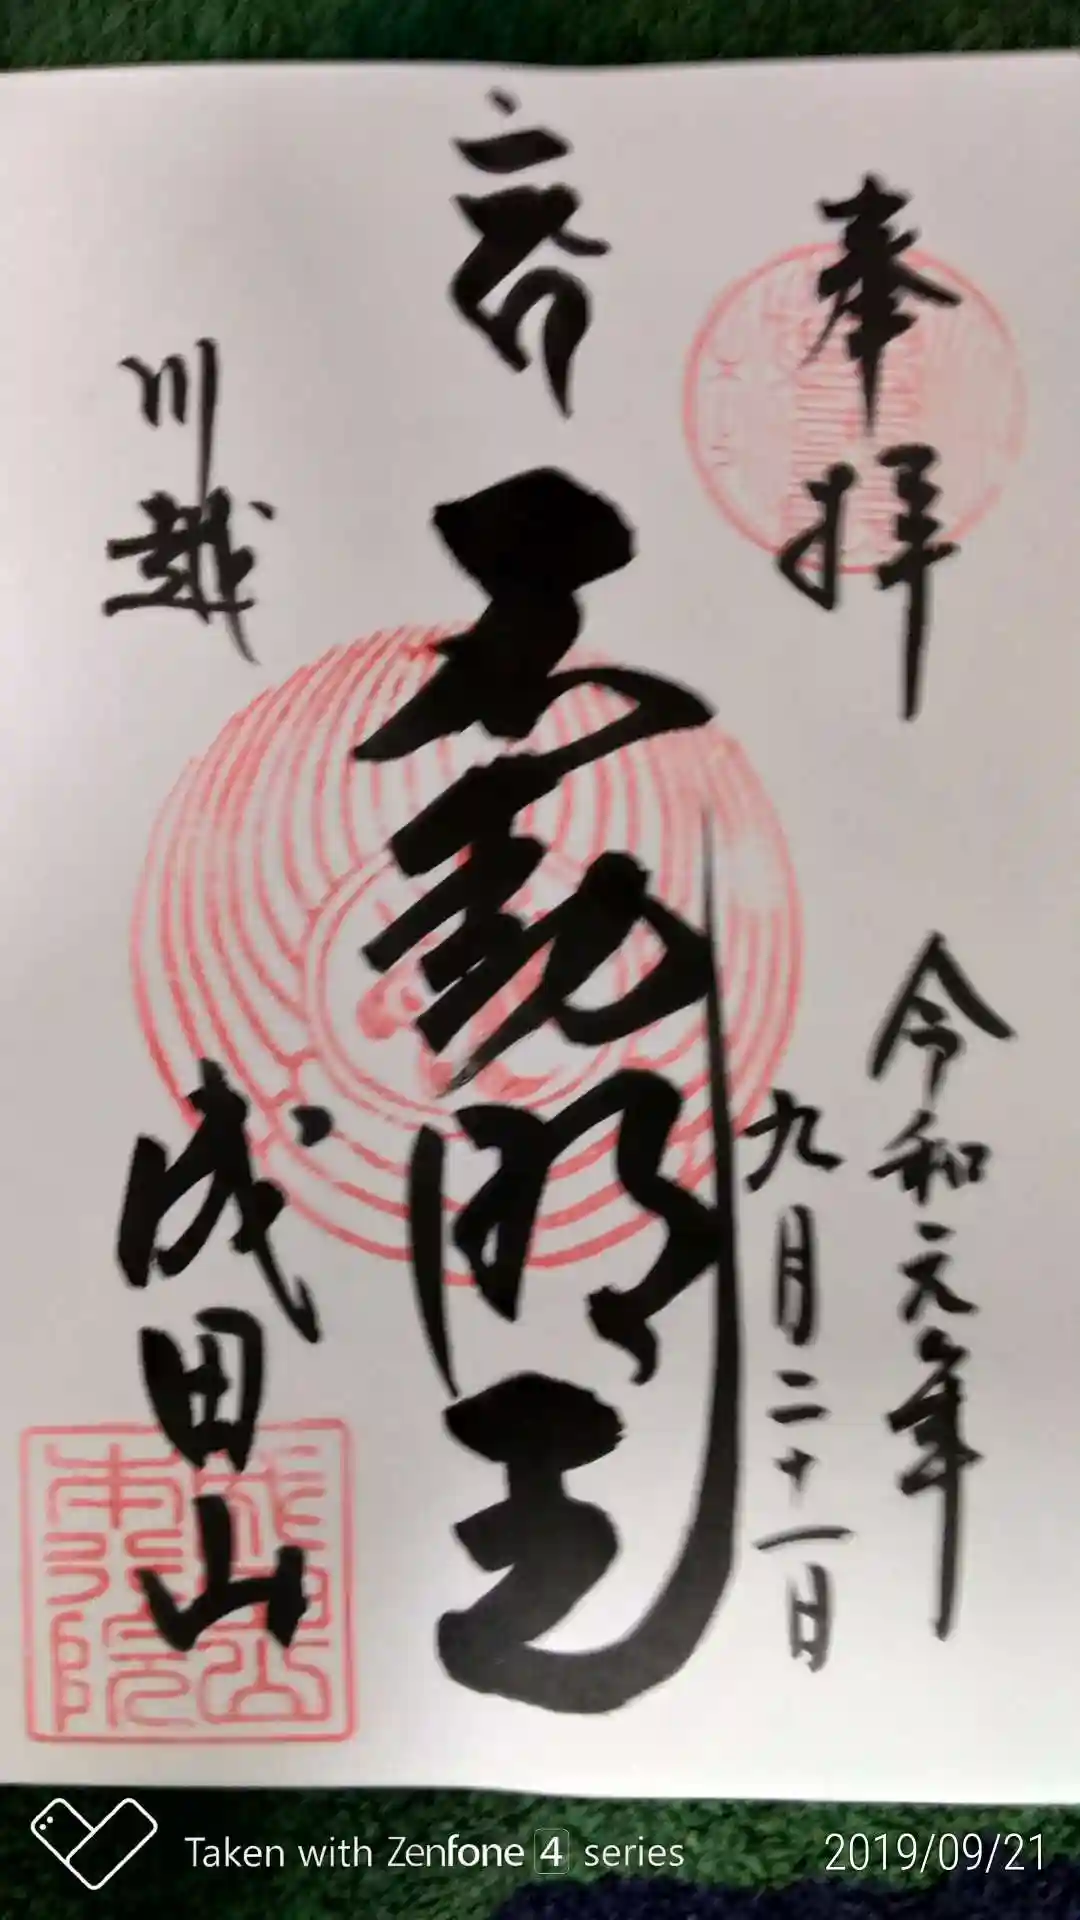 奉拝
令和元年
九月二十一日
不動明王
川越
成田山
成田山
本行院
Taken with Zenfone 4 series
2019/09/21